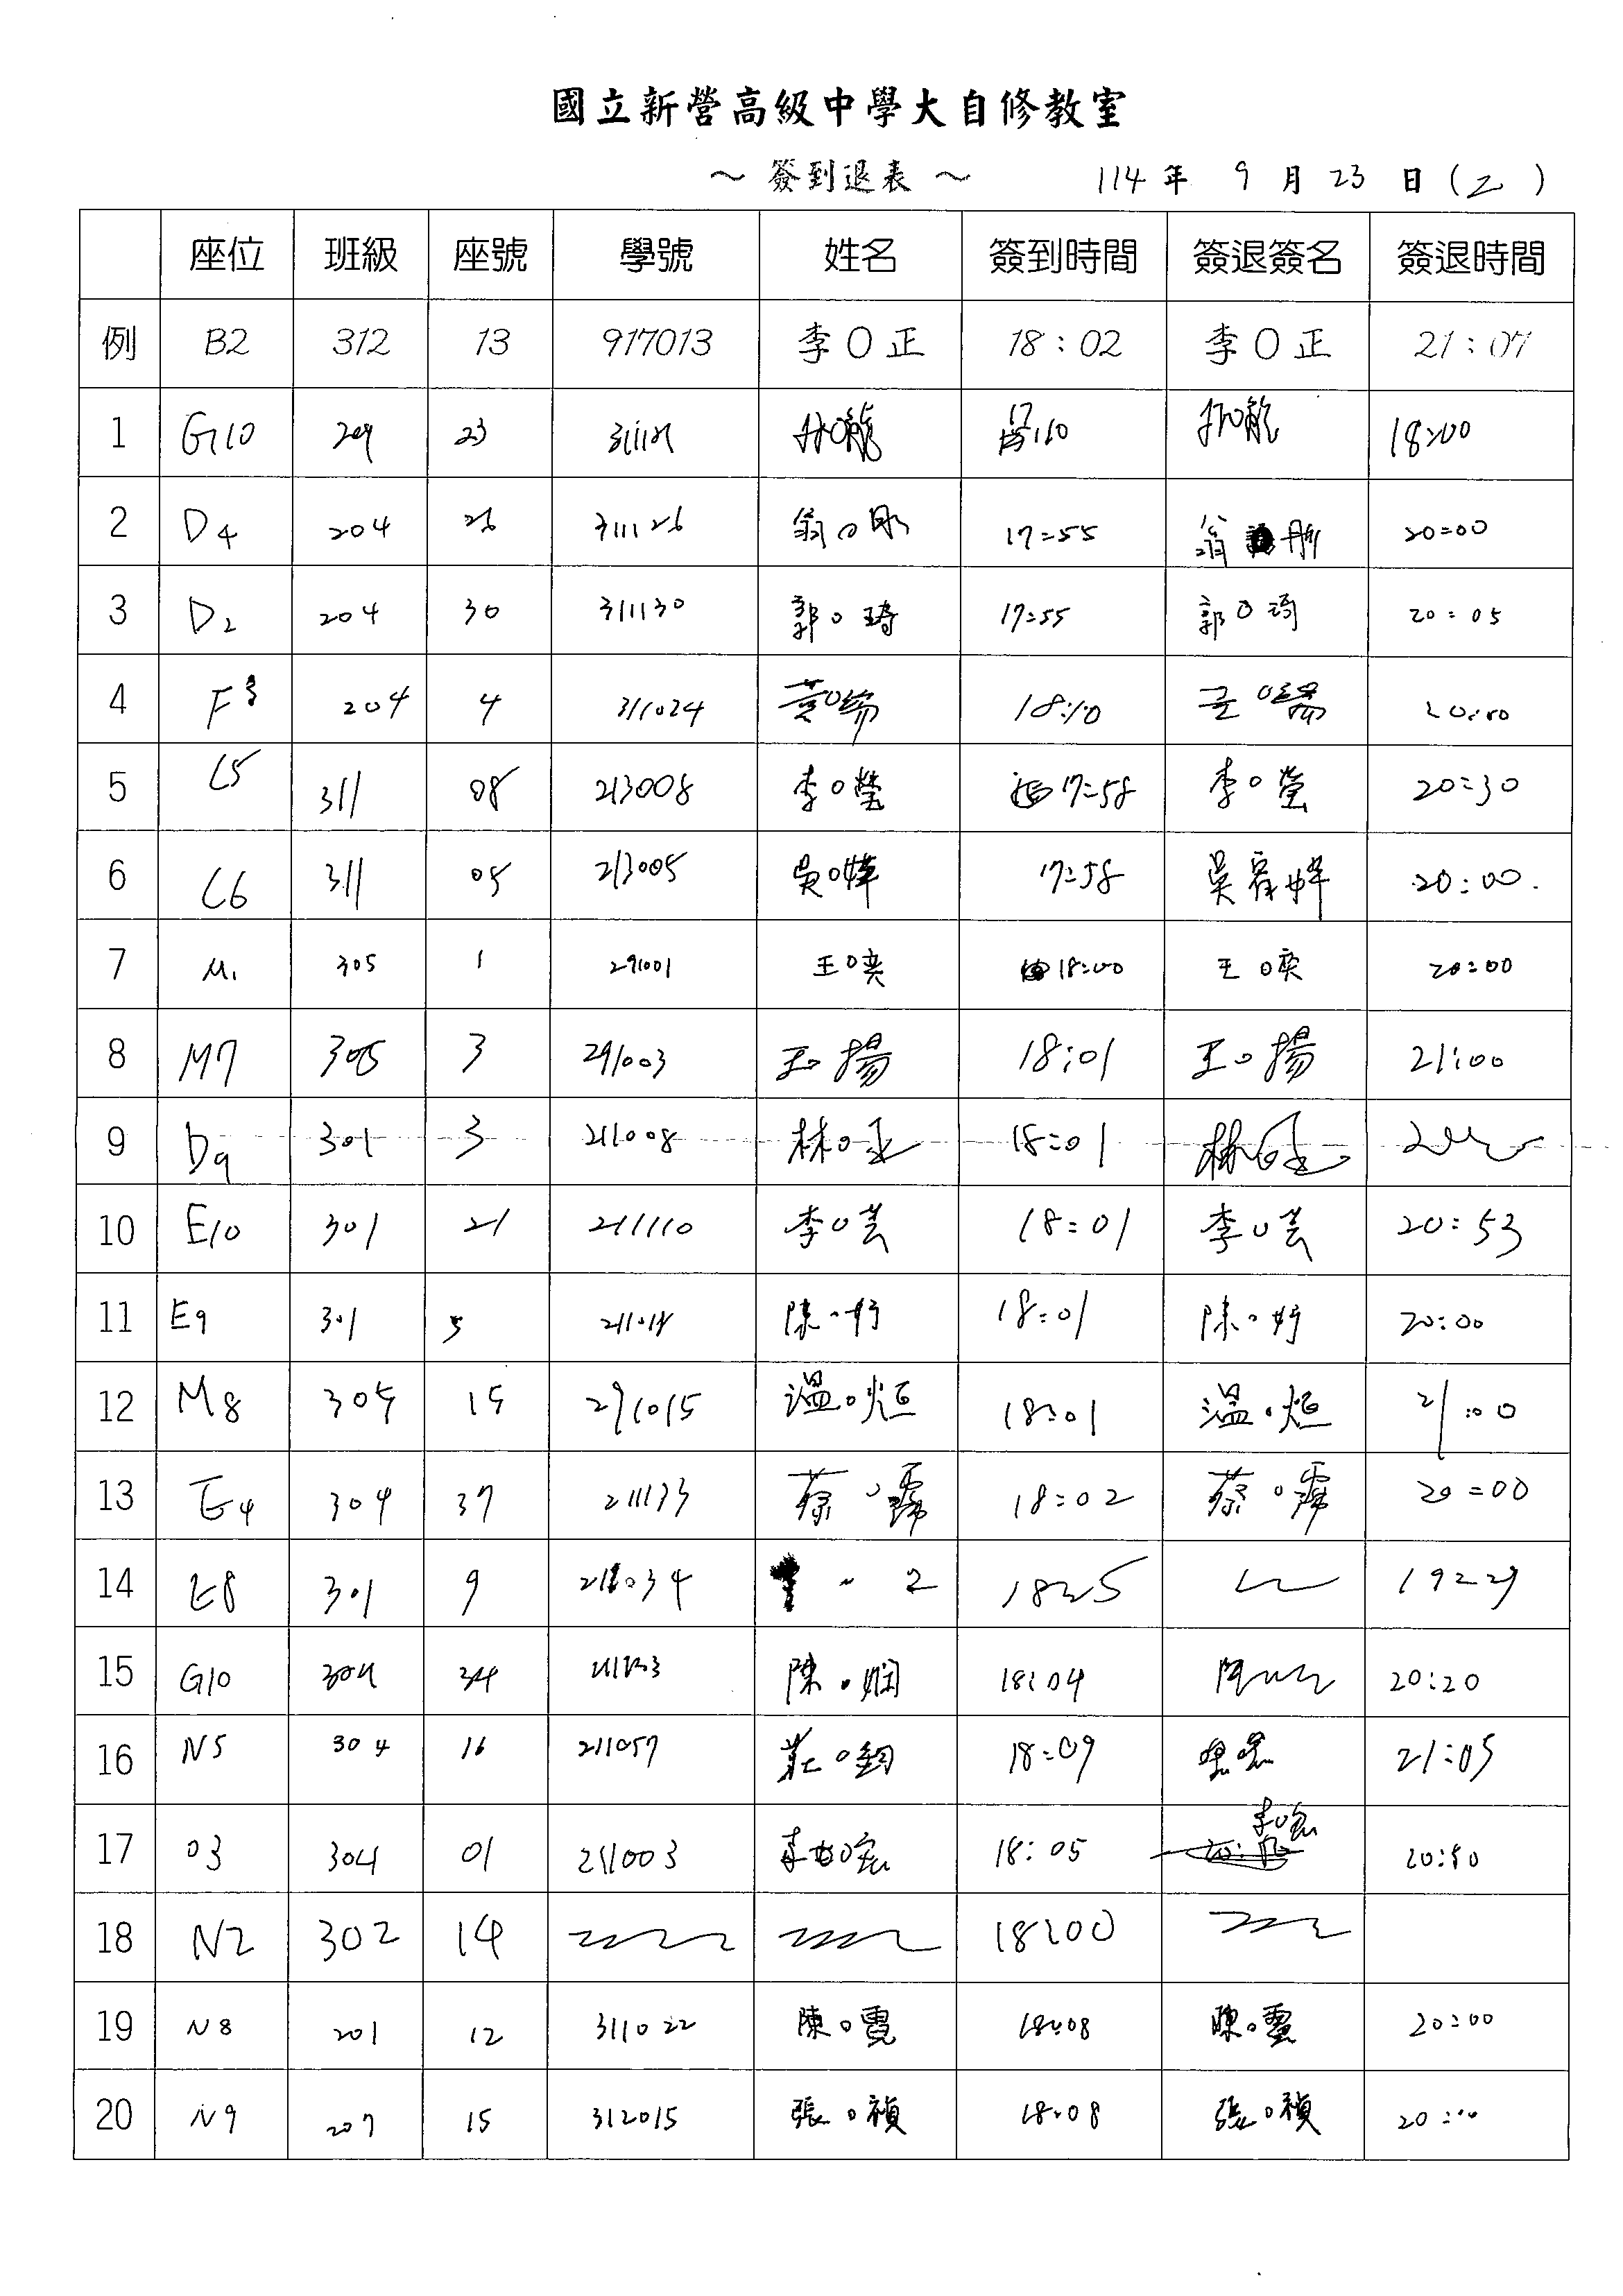 國立新營高級中學大自修教室
～ 簽到退表 ～ 114 年 9 月 23 日 (二)
座位 班級 座號 學號 姓名 簽到時間 簽退簽名 簽退時間
例 B2 312 13 917013 李O正 18:02 李O正 21:07
1 G10 209 23 林O龍 18:00
2 D4 204 26 311126 翁O彤 17:55 翁 彤 20:00
3 D2 204 30 311130 郭O琦 17:55 郭O琦 20:05
4 F3 204 4 311024 黃O暘 18:10 20:10
5 C5 311 08 213008 李O瑩 17:58 李O螢 20:30
6 C6 311 05 213005 吳O嬅 17:58 吳 20:00
7 M1 305 1 291001 王O奕 18:00 王O奕 20:00
8 M7 305 3 291003 王O揚 18:01 王O揚 21:00
9 D9 301 3 211008 林O 18:01 林
10 E10 301 21 211110 李O芸 18:01 李O芸 20:53
11 E9 301 5 陳O妤 18:01 陳O妤 20:00
12 M8 305 15 291015 溫O烜 18:01 溫O烜 21:00
13 E4 304 37 211133 蔡O霈 18:02 蔡O霈 20:00
14 E8 301 9 1825 19:29
15 G10 304 34 陳O嫻 18:04 20:20
16 N5 304 16 211057 莊O鈞 18:09 21:05
17 O3 304 01 211003 李O宏 18:05 李O宏 20:50
18 N2 302 14 18:00
19 N8 201 12 311022 陳O霓 18:08 陳O霓 20:00
20 N9 207 15 312015 張O禎 18:08 張O禎 20:00